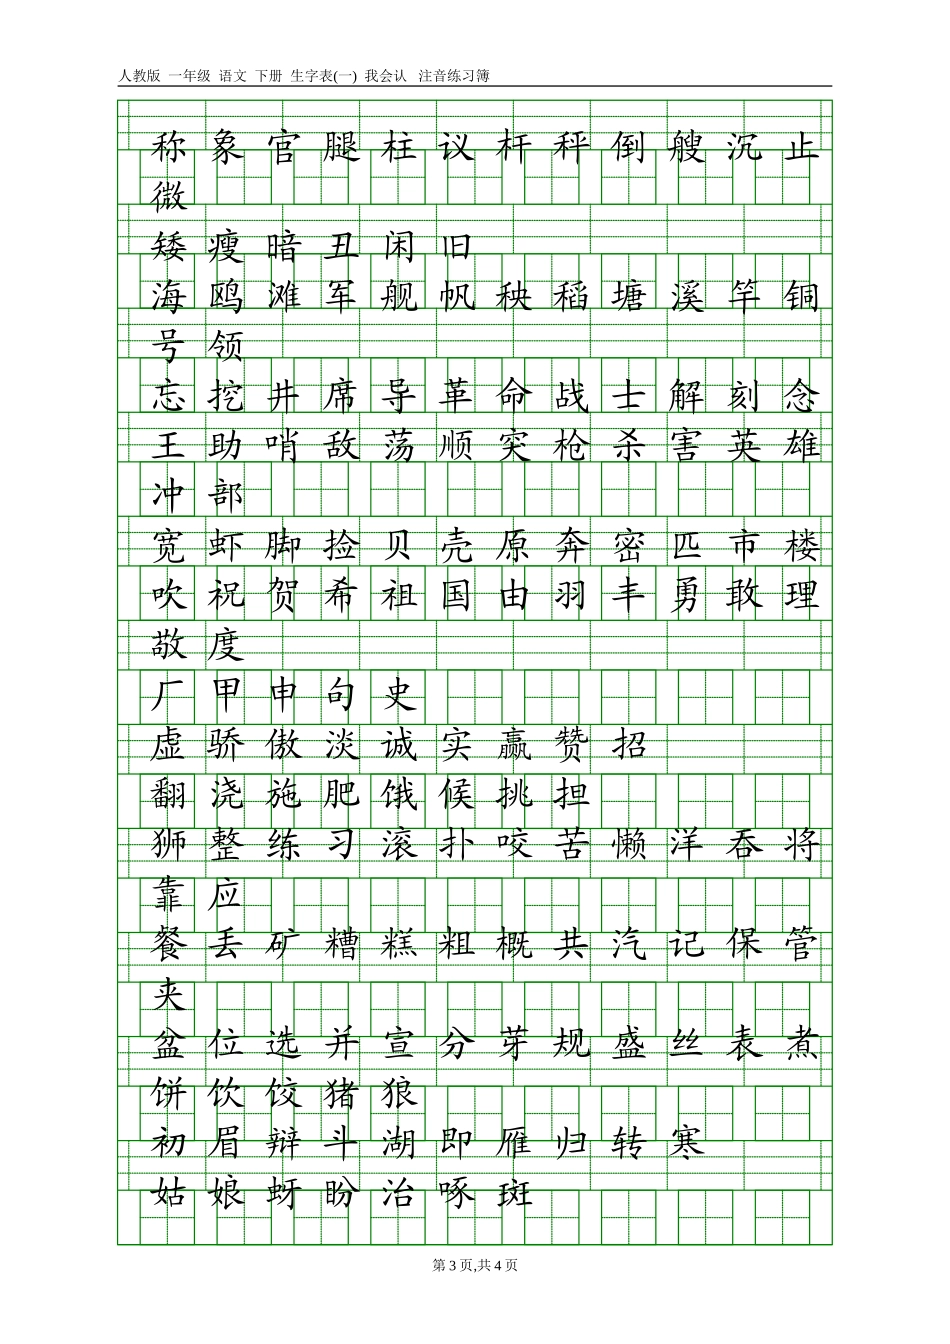 人教版 一年级 语文 下册 生字表(一) 我会认 注音练习簿
称 象 官 腿 柱 议 杆 秤 倒 艘 沉 止
微
矮 瘦 暗 丑 闲 旧
海 鸥 滩 军 舰 帆 秧 稻 塘 溪 竿 铜
号 领
忘 挖 井 席 导 革 命 战 士 解 刻 念
王 助 哨 敌 荡 顺 突 枪 杀 害 英 雄
冲 部
宽 虾 脚 捡 贝 壳 原 奔 密 匹 市 楼
吹 祝 贺 希 祖 国 由 羽 丰 勇 敢 理
敬 度
厂 甲 申 句 史
虚 骄 傲 淡 诚 实 赢 赞 招
翻 浇 施 肥 饿 候 挑 担
狮 整 练 习 滚 扑 咬 苦 懒 洋 吞 将
靠 应
餐 丢 矿 糟 糕 粗 概 共 汽 记 保 管
夹
盆 位 选 并 宣 分 芽 规 盛 丝 表 煮
饼 饮 饺 猪 狼
初 眉 辩 斗 湖 即 雁 归 转 寒
姑 娘 蚜 盼 治 啄 斑
第 3 页,共 4 页